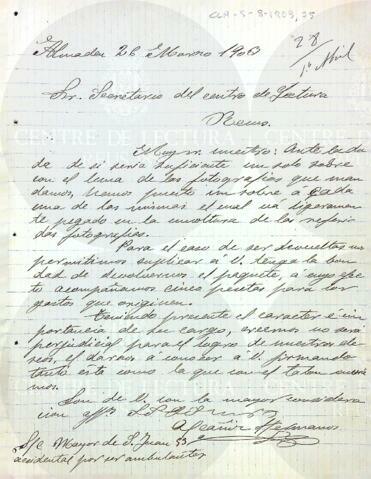 CLR-5-8-1903,25
28
1º Abril
Almaden 26 Marzo 1903
Sr. Secretario del centro de Lectura
Reus.
Muy sr. nuestro: Ante la du
da de si seria suficiente un solo sobre
con el lema de las fotografias que man
damos, hemos puesto un sobre á cada
una de las mismas el cual vá ligeramen
te pegado en la envoltura de las referi
das fotografias.
Para el caso de ser devueltas nos
permitimos suplicar á V. tenga la bon
dad de devolvernos el paquete, á cuyo obje
to acompañamos cinco pesetas para los
gastos que originen.
Teniendo presente el caracter é im
portancia de su cargo, creemos no será
perjudicial para el logro de nuestros de
seos, el darnos á conocer á V. firmando
tanto esta como la que con el talon
Son de V. con la mayor considera
cion
Alcañiz Hermanos
S/c Mayor de S. Juan 53
accidental por ser ambulantes
CENTRE DE LECTURA